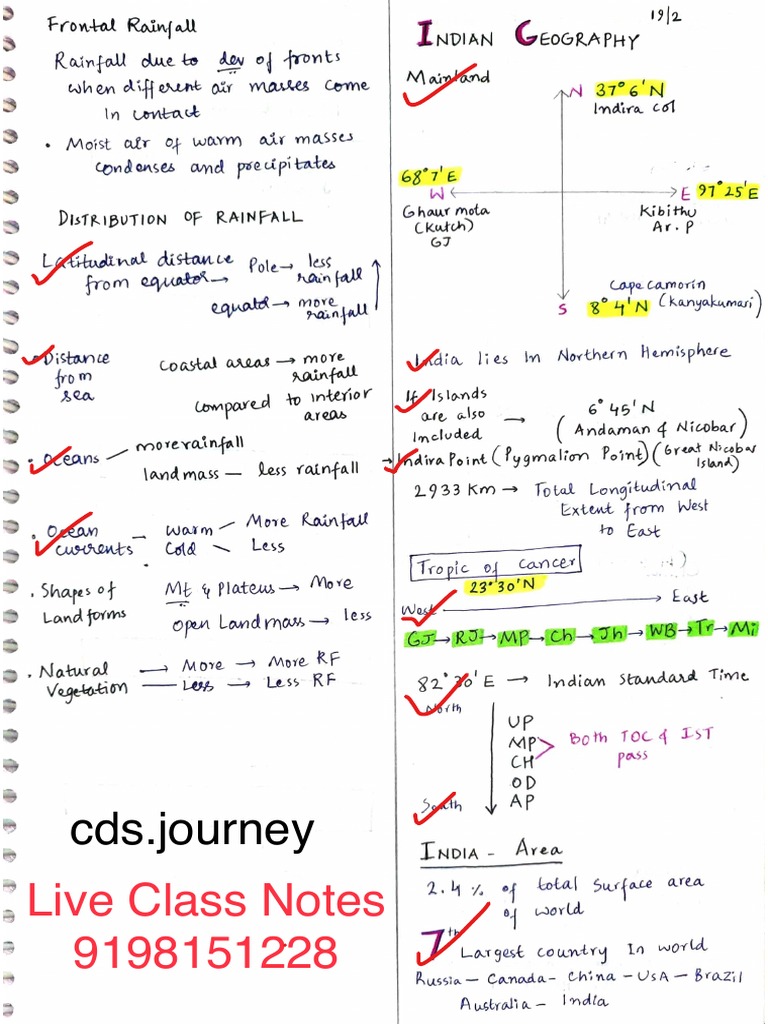 Frontal Rainfall
Rainfall due to dev of fronts
when different air masses come
In contact
• Moist air of warm air masses
condenses and precipitates
DISTRIBUTION OF RAINFALL
Latitudinal distance
from equator → Pole → less
rainfall
equator → more
rainfall
• Distance
from
sea
coastal areas → more
rainfall
compared to interior
areas
• Oceans – more rainfall
landmass — less rainfall
• Ocean
currents – Warm – More Rainfall
Cold – Less
• Shapes of
Landforms
Mt & Plateus → More
Open Landmass → less
• Natural
Vegetation
→ More → More RF
— Less → Less RF
cds.journey
Live Class Notes
9198151228
19/2
INDIAN GEOGRAPHY
Mainland
N 37° 6' N
Indira Col
68° 7' E
W
Ghaur mota
(Kutch)
GJ
E 97° 25' E
Kibithu
Ar. P
Cape camorin
S 8° 4' N (Kanyakumari)
India lies In Northern Hemisphere
If Islands
are also
Included → 6° 45' N
(Andaman & Nicobar)
→ Indira Point (Pygmalion Point) (Great Nicobar
Island)
2933 Km → Total Longitudinal
Extent from West
to East
Tropic of Cancer
23° 30' N
West → East
GJ → RJ → MP → Ch → Jh → WB → Tr → Mi
82° 30' E → Indian Standard Time
North
UP
MP
CH
OD
AP
Both TOC & IST
pass
South
INDIA - Area
2.4 % of total Surface area
of world
7th Largest country In world
Russia — Canada — China — USA — Brazil
Australia — India